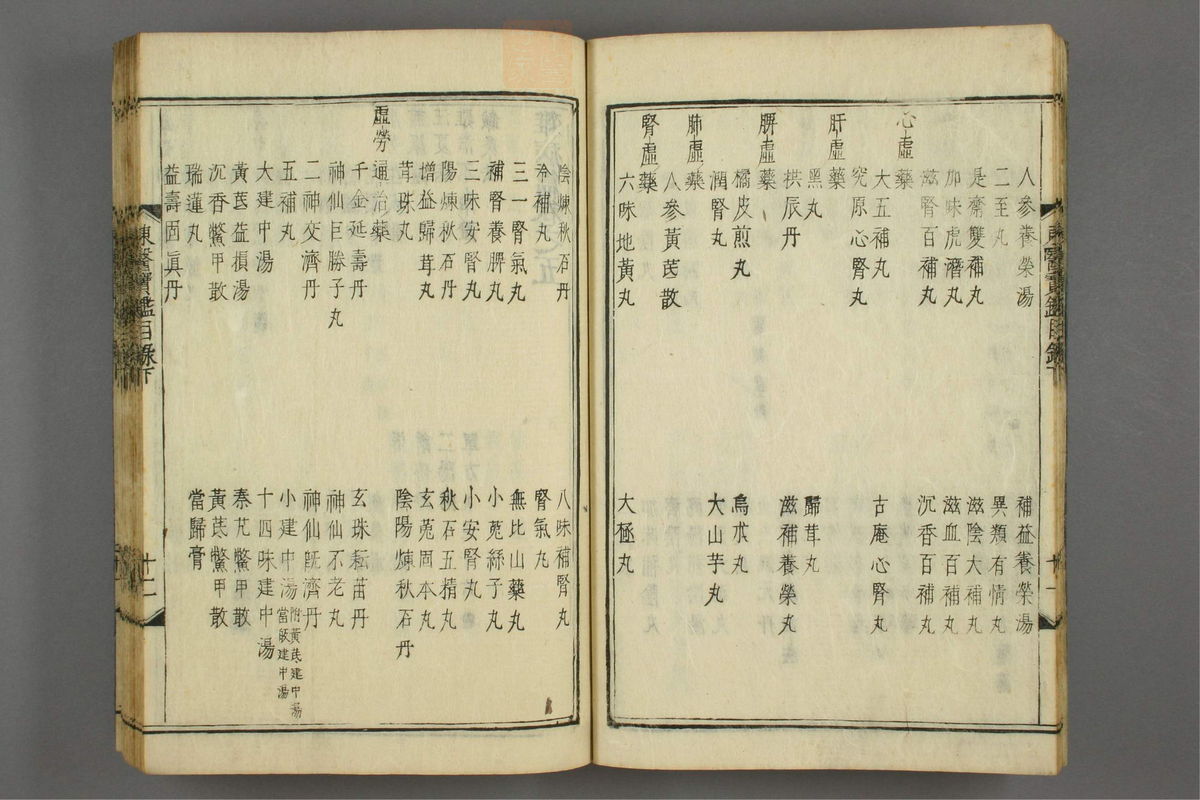 人參養榮湯　補益養榮湯
二至丸　異類有情丸
是齋雙補丸　滋陰大補丸
加味虎潛丸　滋血百補丸
滋腎百補丸　沉香百補丸
心虛藥
大五補丸　古庵心腎丸
究原心腎丸
肝虛藥
黑丸　歸茸丸
拱辰丹　滋補養榮丸
脾虛藥
橘皮煎丸　烏朮丸
潤腎丸　大山芋丸
肺虛藥
人參黃芪散
腎虛藥
六味地黃丸　大極丸
東醫寶鑑目錄下
十一
陰煉秋石丹　八味補腎丸
冷補丸　腎氣丸
三一腎氣丸　無比山藥丸
補腎養脾丸　小菟絲子丸
三味安腎丸　小安腎丸
陽煉秋石丹　秋石五精丸
增益歸茸丸　玄菟固本丸
茸珠丸　陰陽煉秋石丹
虛勞通治藥
千金延壽丹　玄珠耘苗丹
神仙巨勝子丸　神仙不老丸
二神交濟丹　神仙旣濟丹
五補丸　小建中湯 附黃芪建中湯當歸建中湯
大建中湯　十四味建中湯
黃芪益損湯　秦艽鱉甲散
沉香鱉甲散　黃芪鱉甲散
瑞蓮丸　當歸膏
益壽固眞丹
東醫寶鑑目錄下
十二